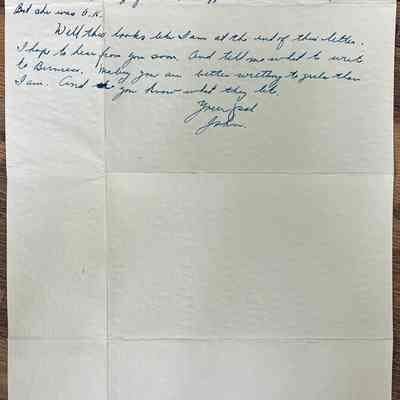 But she was O.K.
Well this looks like I am at the end of this letter.
I hope to hear from you soon. And tell me what to write
to you are better writting to than
I am. And you know what they
Your pal
John.